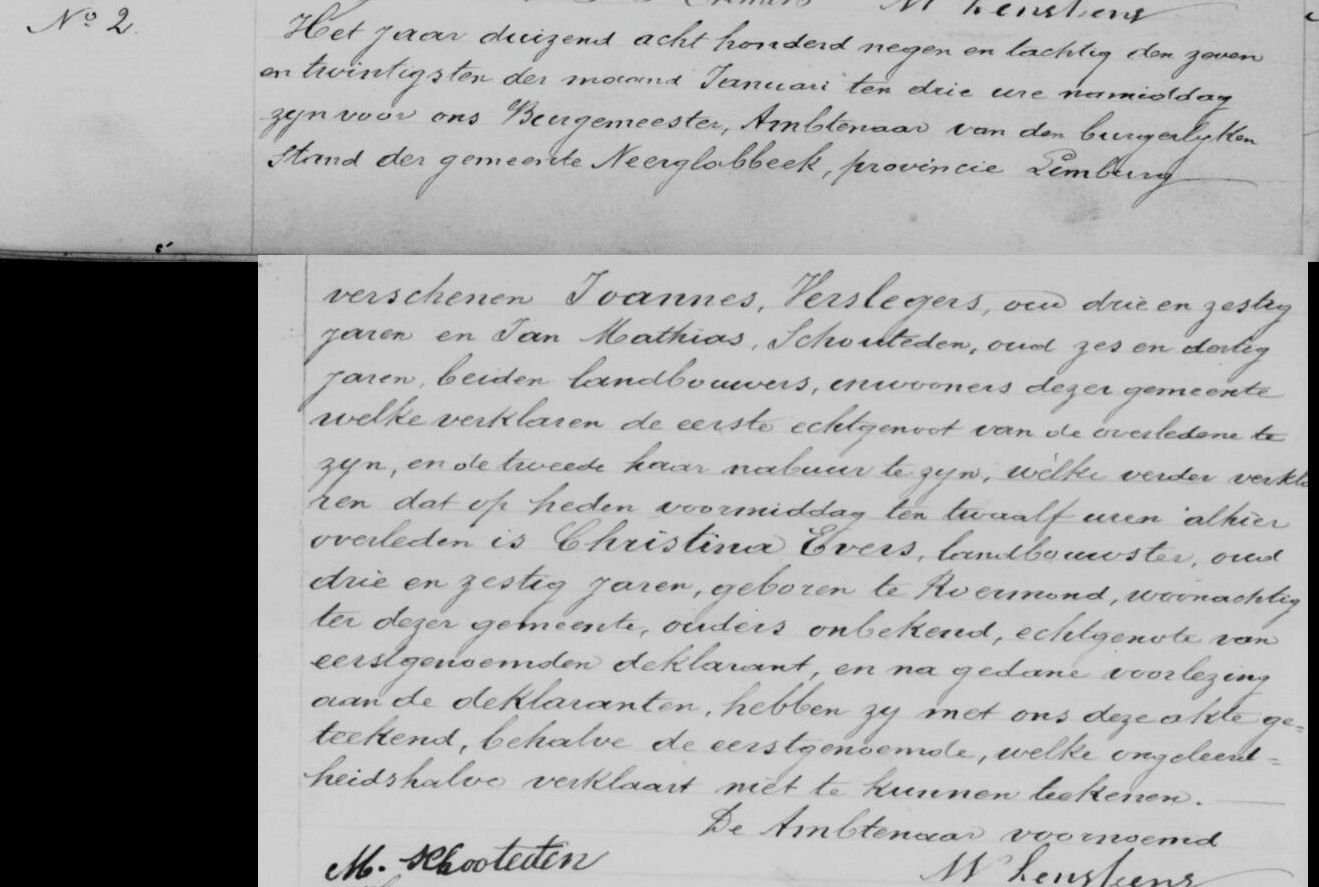 No 2.
Het jaar duizend acht honderd negen en tachtig den zeven
en twintigsten der maand Januari ten drie ure namiddag
zyn voor ons Burgemeester, Ambtenaar van den burgerlyken
stand der gemeente Neerglabbeek, provincie Limburg
verschenen Joannes, Verslegers, oud drie en zestig
jaren en Jan Mathias, Schouteden, oud zes en dertig
jaren, beiden landbouwers, inwooners dezer gemeente
welke verklaren de eerste echtgenoot van de overledene te
zyn, en de tweede haar nabuur te zyn, welke verder verkla
ren dat op heden voormiddag ten twaalf uren alhier
overleden is Christina Evers, landbouwster, oud
drie en zestig jaren, geboren te Roermond, woonachtig
ter dezer gemeente, ouders onbekend, echtgenote van
eerstgenoemden deklarant, en na gedane voorlezing
aan de deklaranten, hebben zy met ons deze akte ge=
teekend, behalve de eerstgenoemde, welke ongeleerd=
heidshalve verklaart niet te kunnen teekenen.
De Ambtenaar voornoemd
M. Schooteden